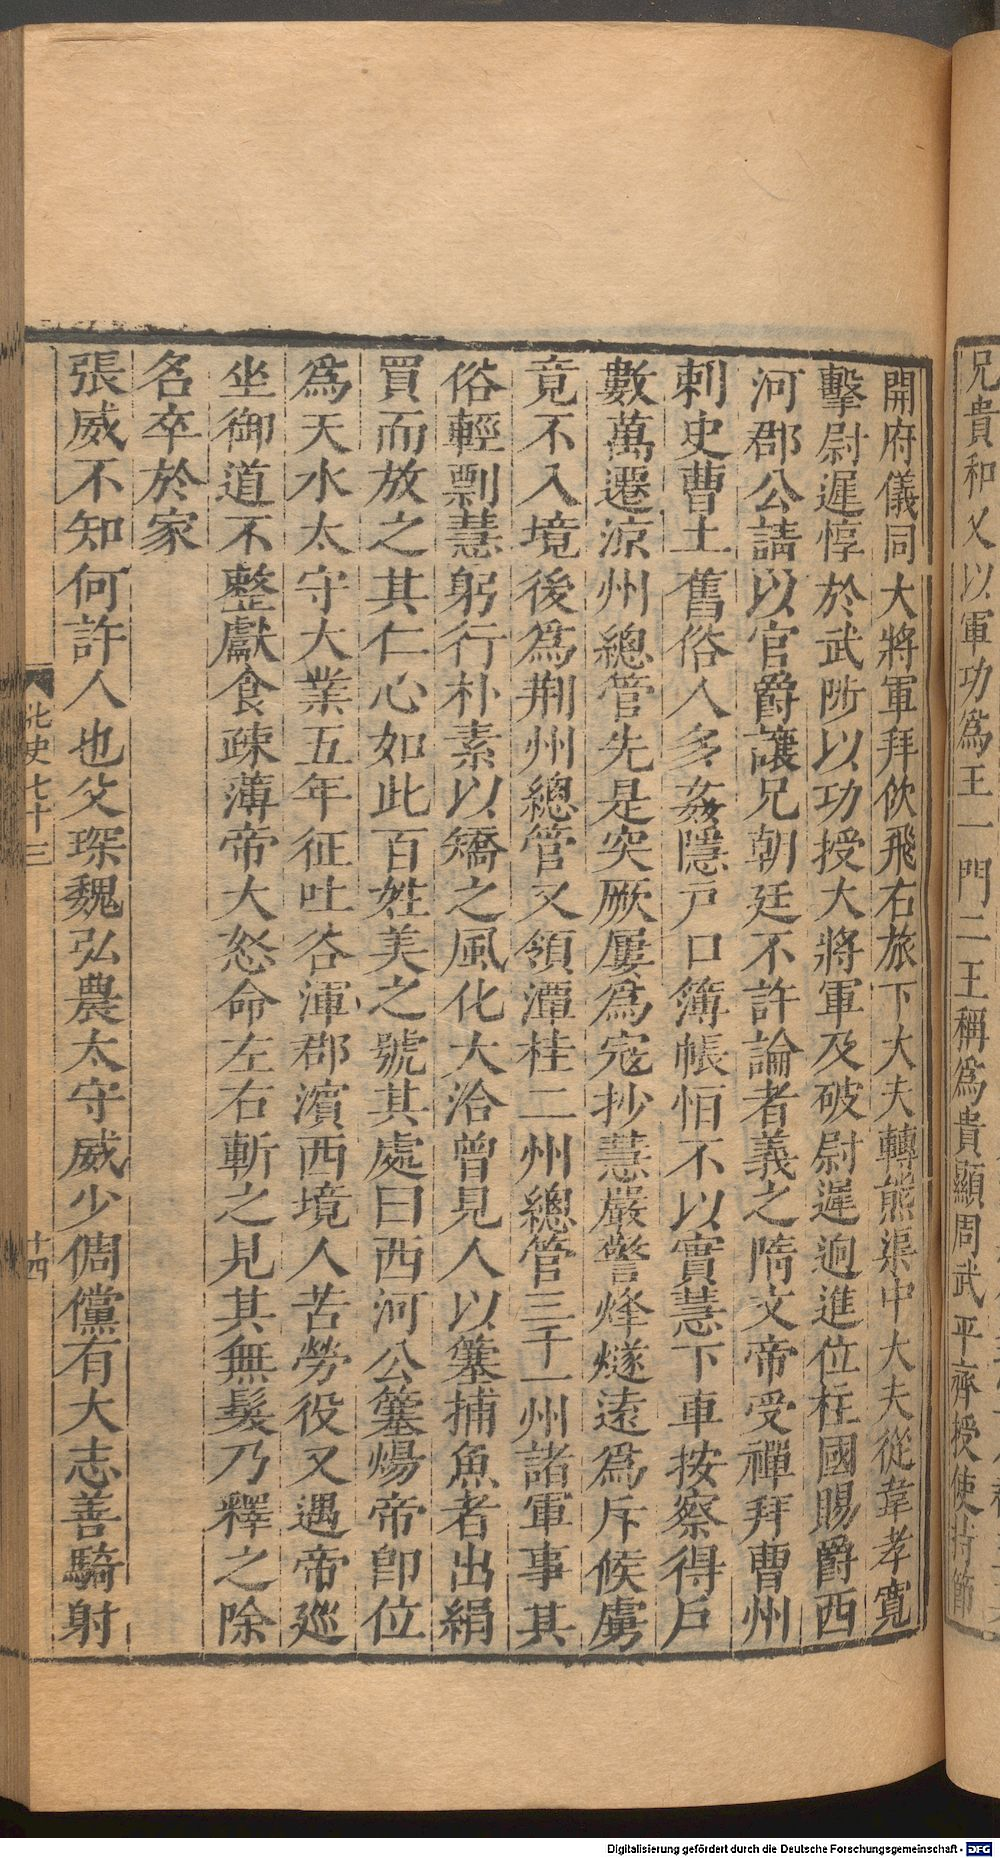 兄貴和又以軍功為王一門二王稱為貴顯周武平齊授使持節
開府儀同大將軍拜佽飛右旅下大夫轉熊渠中大夫從韋孝寛
擊尉遲惇於武陟以功授大將軍及破尉遲迥進位柱國賜爵西
河郡公請以官爵讓兄朝廷不許論者義之隋文帝受禪拜曹州
刺史曹土舊俗人多姦隱戸口簿帳恒不以實慧下車按察得戸
數萬遷涼州總管先是突厥屢為寇抄慧嚴警烽燧遠為斥候虜
竟不入境後為荆州總管又領潭桂二州總管三十一州諸軍事其
俗輕剽慧躬行朴素以矯之風化大洽曾見人以簺捕魚者出絹
買而放之其仁心如此百姓美之號其處曰西河公簺煬帝即位
為天水太守大業五年征吐谷渾郡濱西境人苦勞役又遇帝廵
坐御道不整獻食疎薄帝大怒命左右斬之見其無髮乃釋之除
名卒於家
張威不知何許人也父琛魏弘農太守威少倜儻有大志善騎射
北史七十三
十四
Digitalisierung gefördert durch die Deutsche Forschungsgemeinschaft - DFG